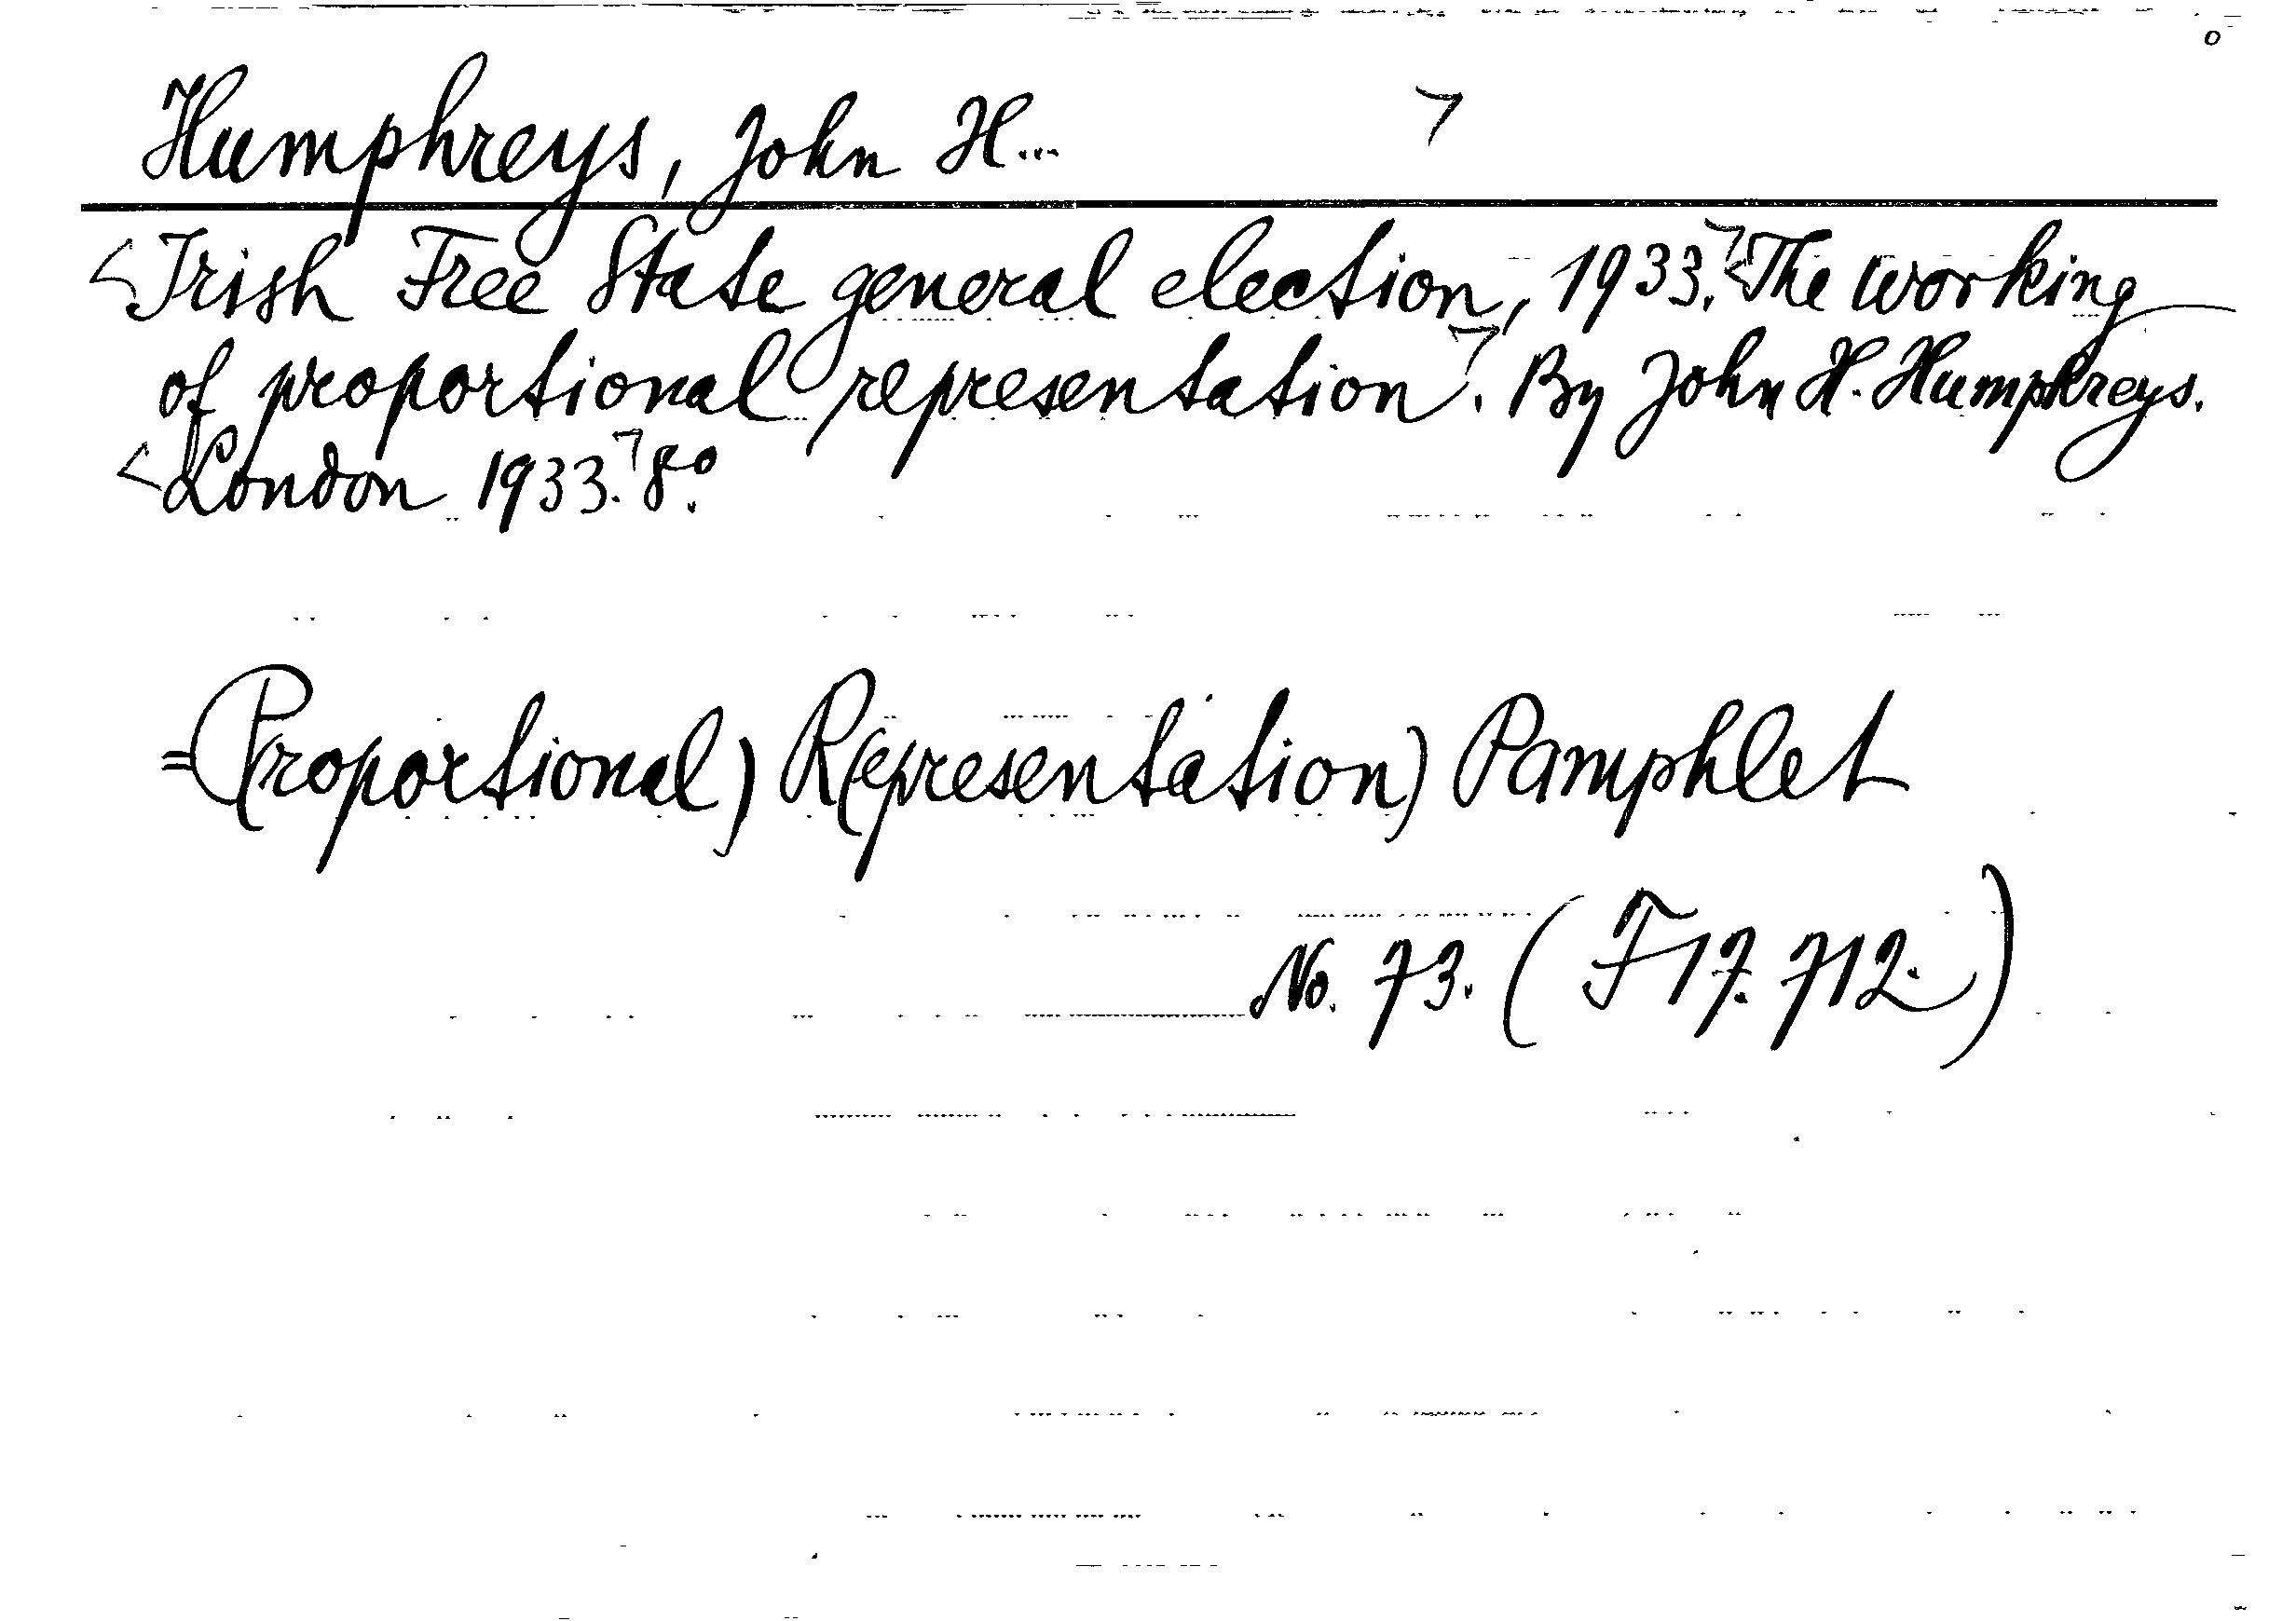 Humphreys, John H...
<Irish Free State general election, 1933.> <The working
of proportional representation>. By John H. Humphreys.
<London 1933.> 8°.
=P(roportional) R(epresentation) Pamphlet
No. 73. (F 17.712.)